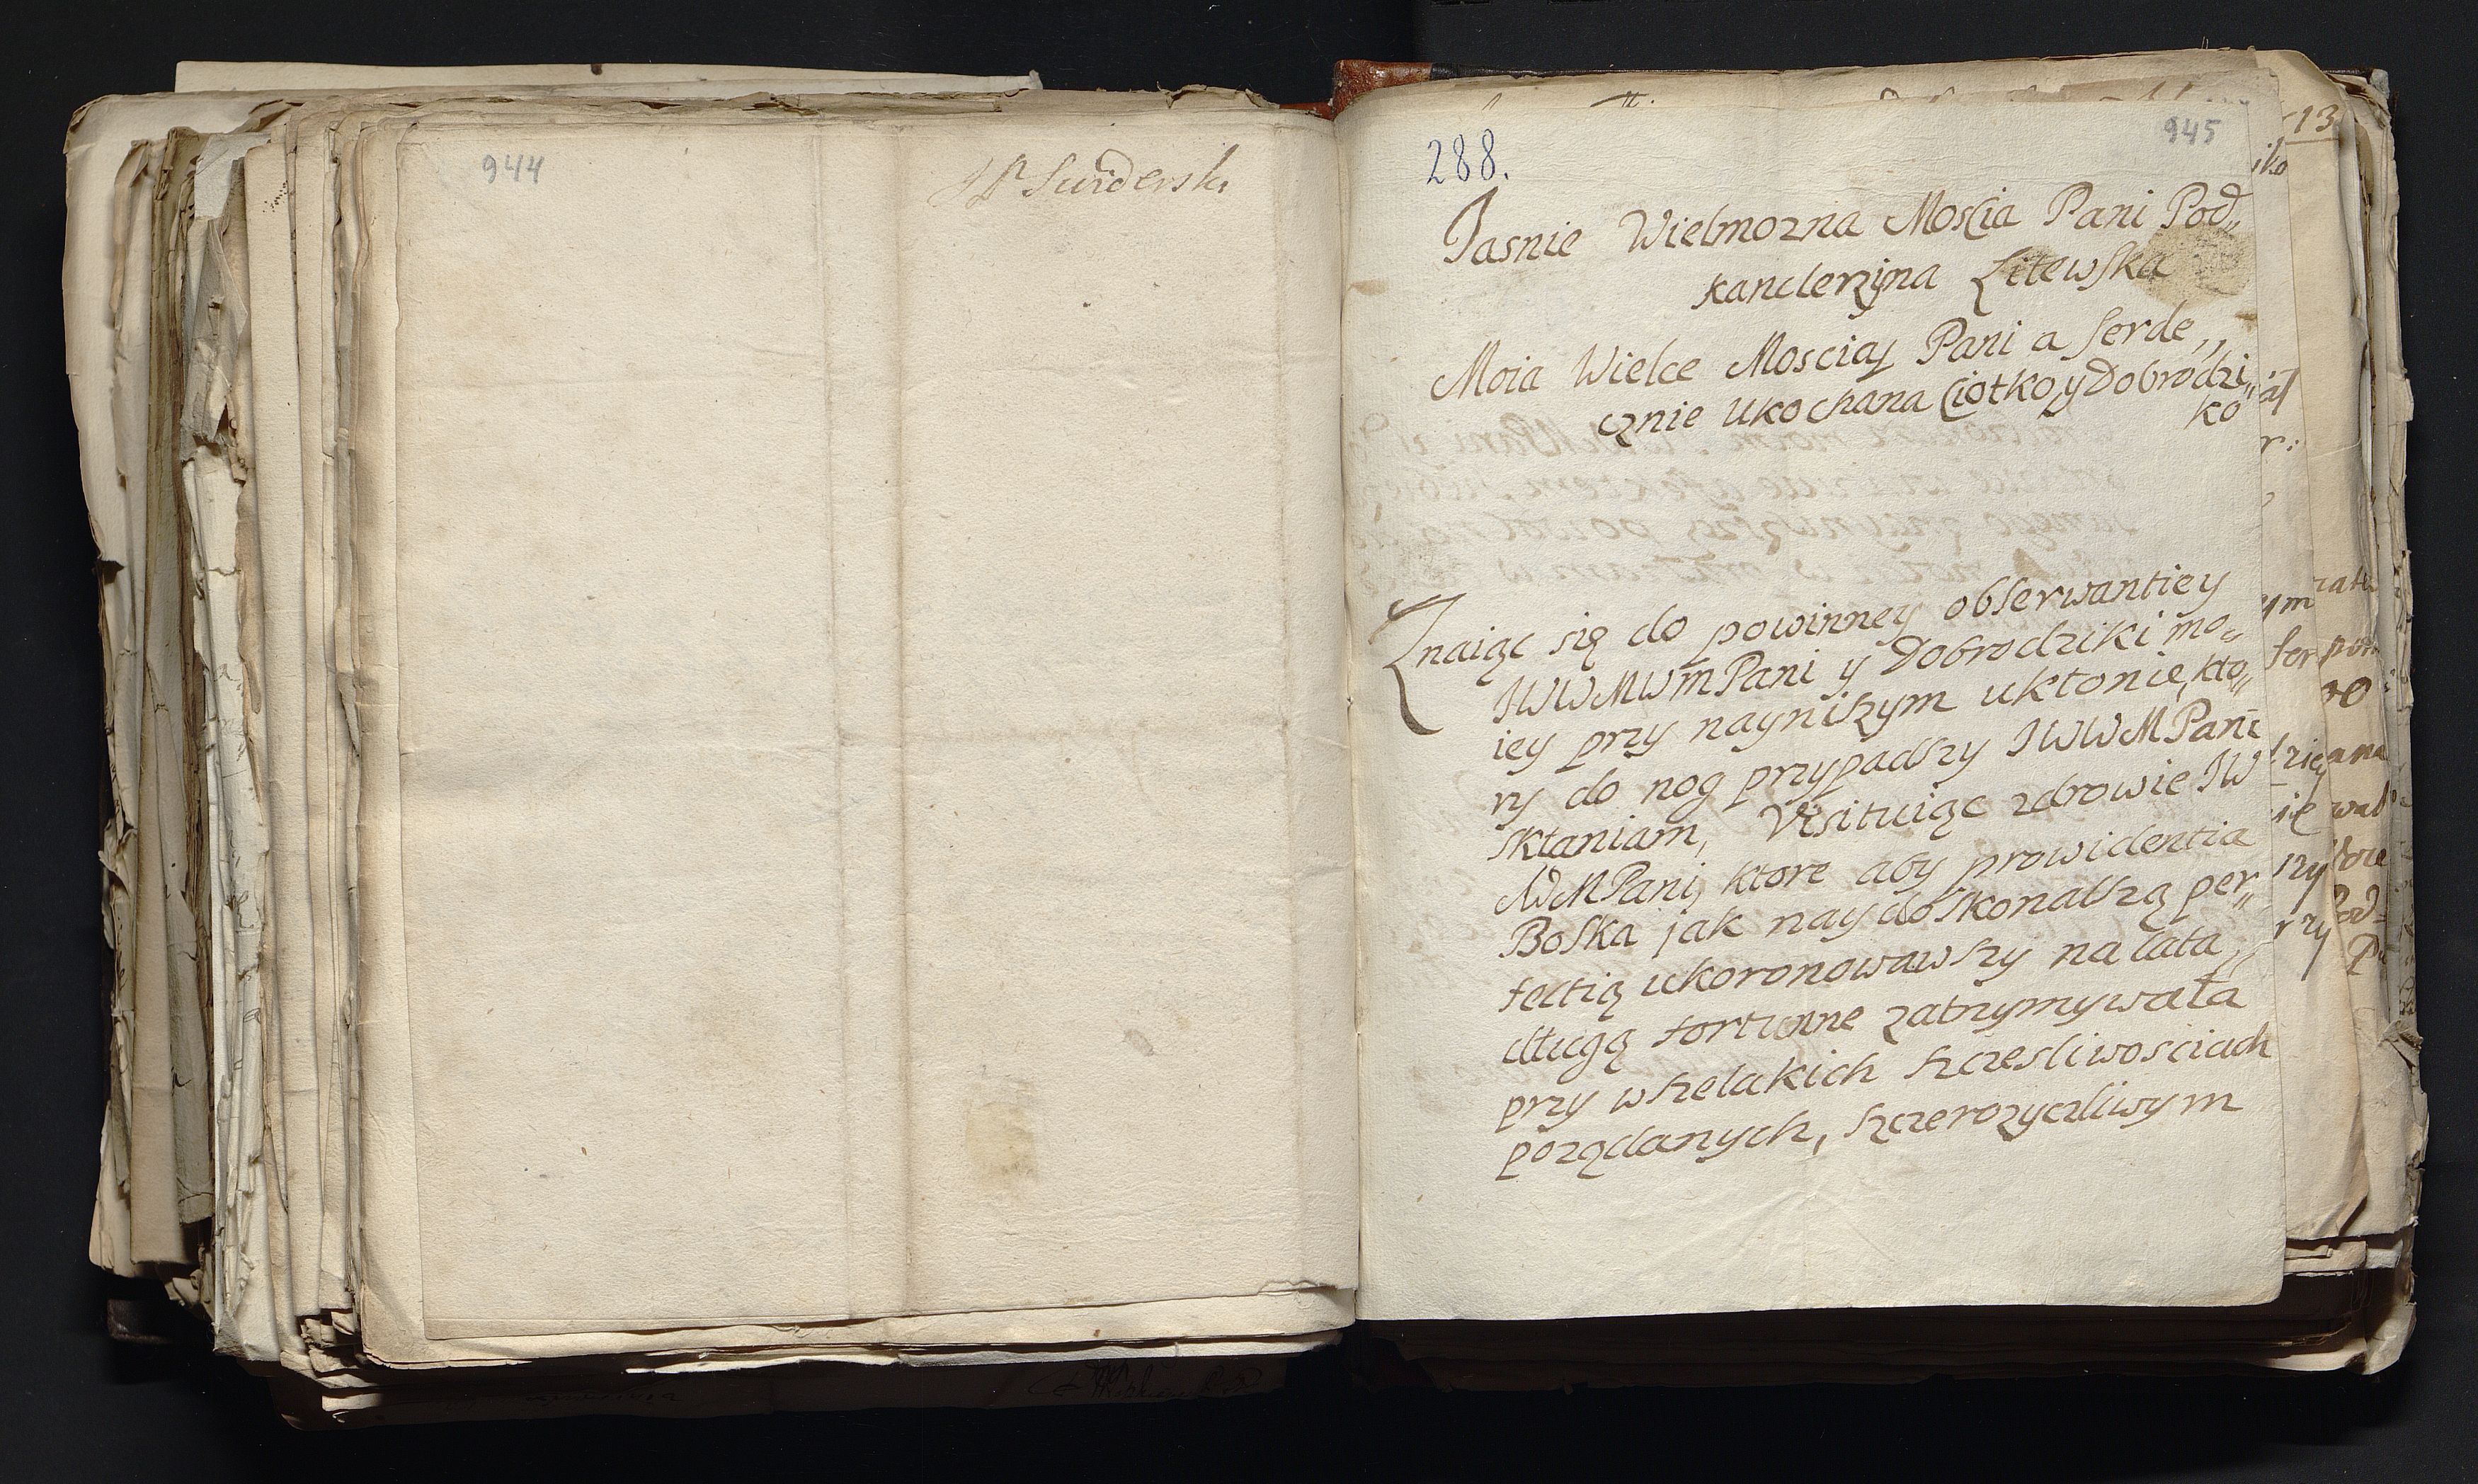 944
Swiderski
945
288.
Jasnie Wielmozna Mośćia Pani Pod„
kanclerzyna Litewska
Moia Wielce Mościa Pani a serde„
cznie Ukochana Ciotko y Dobrodzi„
ko
Znaiąc się do powinney obserwantiey
JWWMWmPani y Dobrodziki mo„
iey przy nayniszym ukłonie, kto„
ry do nog przypadszy JWWMPani
skłaniam, Visituiąc zdrowie JW
WMPani, ktore aby prowidentia
Boska jak naydoskonalszą per„
fectią ukoronowawszy na lata„
długą fortunne zatrzymywała
przy wszelakich szczesliwosciach
pożądanych, szczerozyczliwym